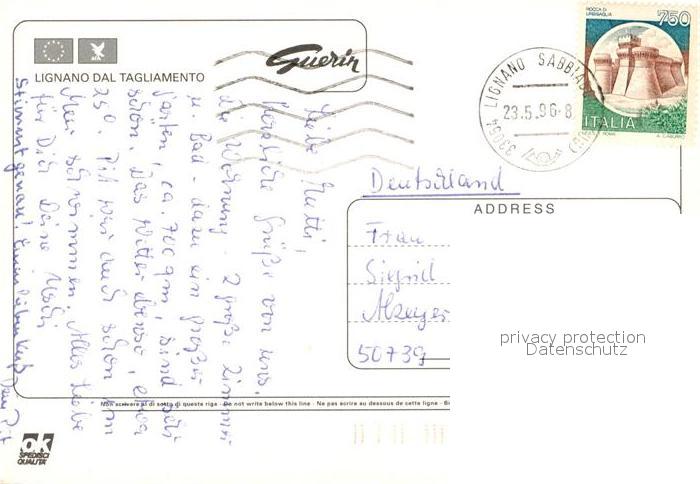 LIGNANO DAL TAGLIAMENTO
Guerin
33054 LIGNANO SABBIAD
23.5.96-8
ROCCA DI URBISAGLIA
750
ITALIA
Liebe Mutti,
herzliche Grüße von uns.
Die Wohnung - 2 große Zimmer
u. Bad - dazu ein großer
Garten, ca. 700 qm, sind sehr
schön. Das Wetter ebenso, etwa
25°. Pit war auch schon im
Meer schwimmen. Alles Liebe
für Dich Deine
Stimmt genau! Einen lieben Kuß Dein Pit
Deutschland
ADDRESS
Frau
Sigrid
Alzeyer
50739
privacy protection
Datenschutz
Non scrivere al di sotto di questa riga - Do not write below this line - Ne pas écrire au dessous de cette ligne -
ok
SPEDISCI
QUALITA'